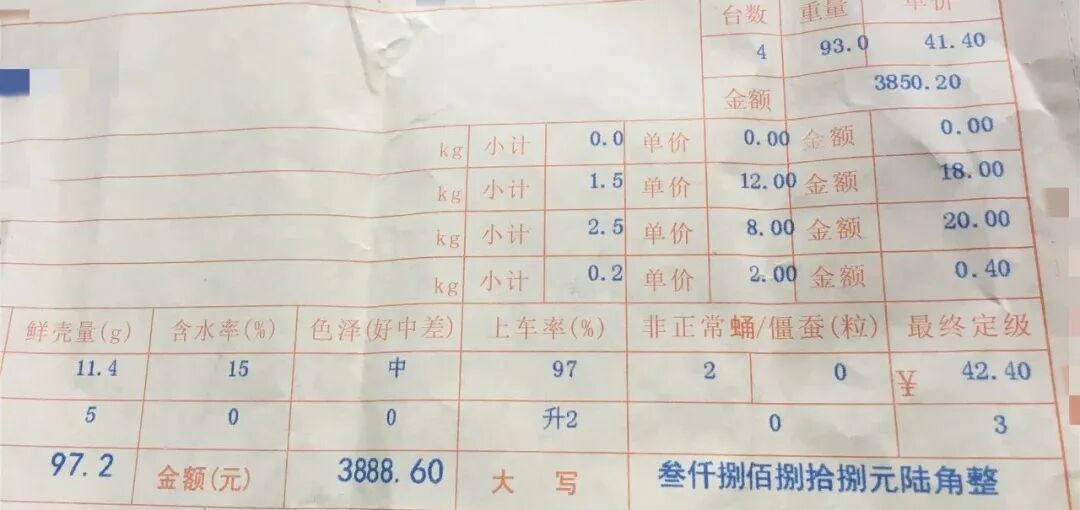 台数 重量 单价
4 93.0 41.40
金额 3850.20
kg 小计 0.0 单价 0.00 金额 0.00
kg 小计 1.5 单价 12.00 金额 18.00
kg 小计 2.5 单价 8.00 金额 20.00
kg 小计 0.2 单价 2.00 金额 0.40
鲜壳量(g) 含水率(%) 色泽(好中差) 上车率(%) 非正常蛹/僵蚕(粒) 最终定级
11.4 15 中 97 2 0 ¥ 42.40
5 0 0 升2 0 3
97.2 金额(元) 3888.60 大写 叁仟捌佰捌拾捌元陆角整